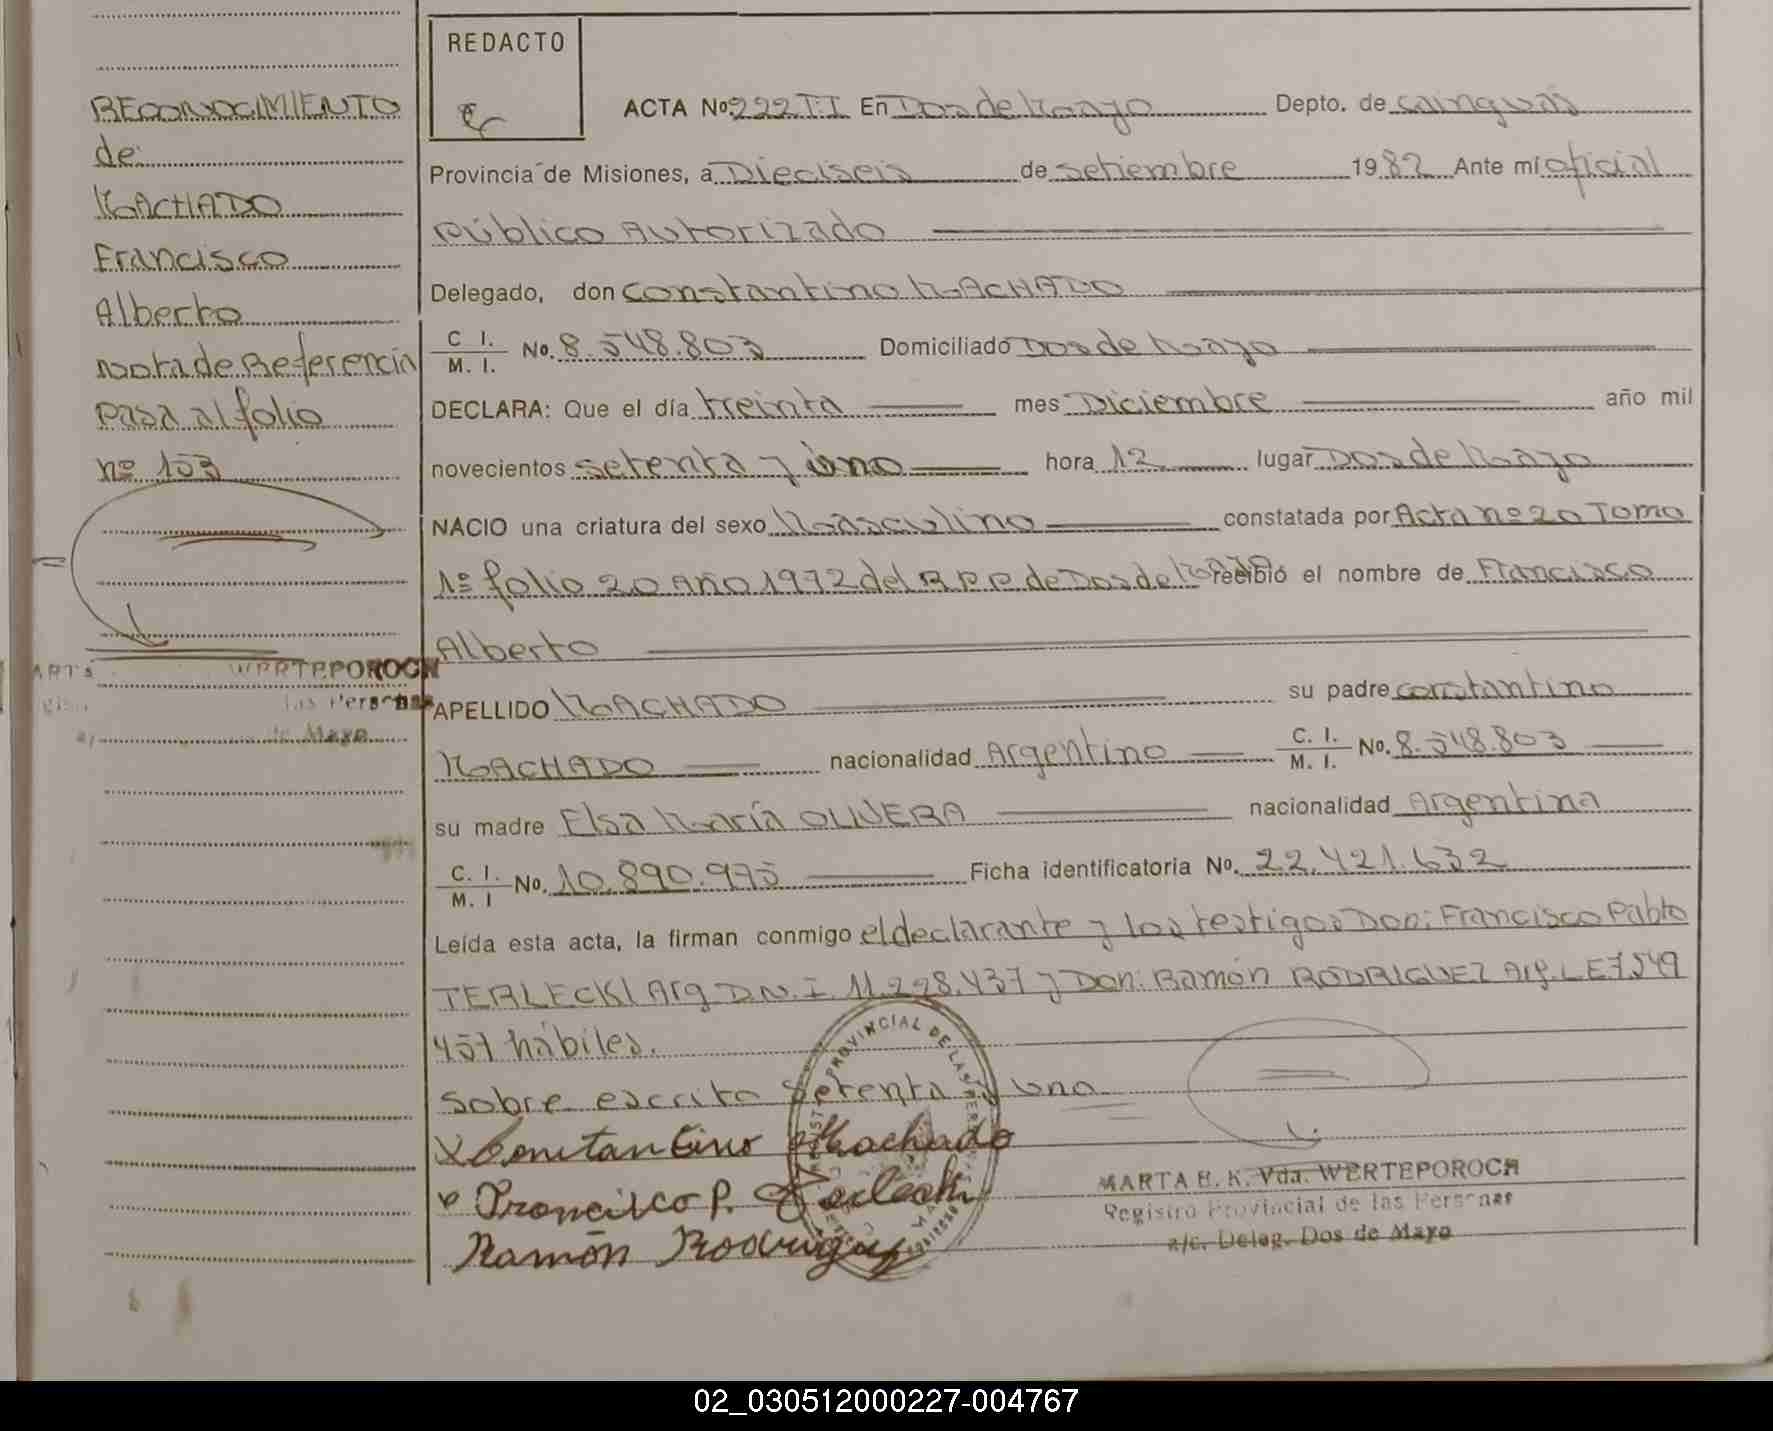 RECONOCIMIENTO
de:
MACHADO
Francisco
Alberto
Nota de Referencia
Pasa al folio
nº 153
WERTEPOROCH
las Personas
de Mayo
REDACTO
ACTA No 222 T.I En Dos de Mayo Depto. de cainguás
Provincia de Misiones, a Dieciseis de setiembre 1982 Ante mí oficial
Público Autorizado
Delegado, don Constantino MACHADO
C. I. M. I. No. 8.548.803 Domiciliado Dos de Mayo
DECLARA: Que el día treinta mes Diciembre año mil
novecientos setenta y uno hora 12 lugar Dos de Mayo
NACIO una criatura del sexo Masculino constatada por Acta nº 20 Tomo
1º folio 20 Año 1972 del R.P.P. de Dos de Mayo recibió el nombre de Francisco
Alberto
APELLIDO MACHADO su padre constantino
MACHADO nacionalidad Argentino C. I. M. I. No. 8.548.803
su madre Elsa María OLIVERA nacionalidad Argentina
C. I. M. I No. 10.890.975 Ficha identificatoria No. 22.421.632
Leída esta acta, la firman conmigo el declarante y los testigos Don: Francisco Pablo
TERLECKI Arg D.N.I. 11.298.437 y Don: Ramón RODRIGUEZ Arg. L E 7.549
457 hábiles.
Sobre escrito Setenta y uno
x Constantino Machado
x Francisco P. Terlecki
Ramón Rodriguez
PROVINCIAL DE LAS PERSONAS
MARTA H. K. Vda. WERTEPOROCH
Registro Provincial de las Personas
a/c. Deleg. Dos de Mayo
02_030512000227-004767